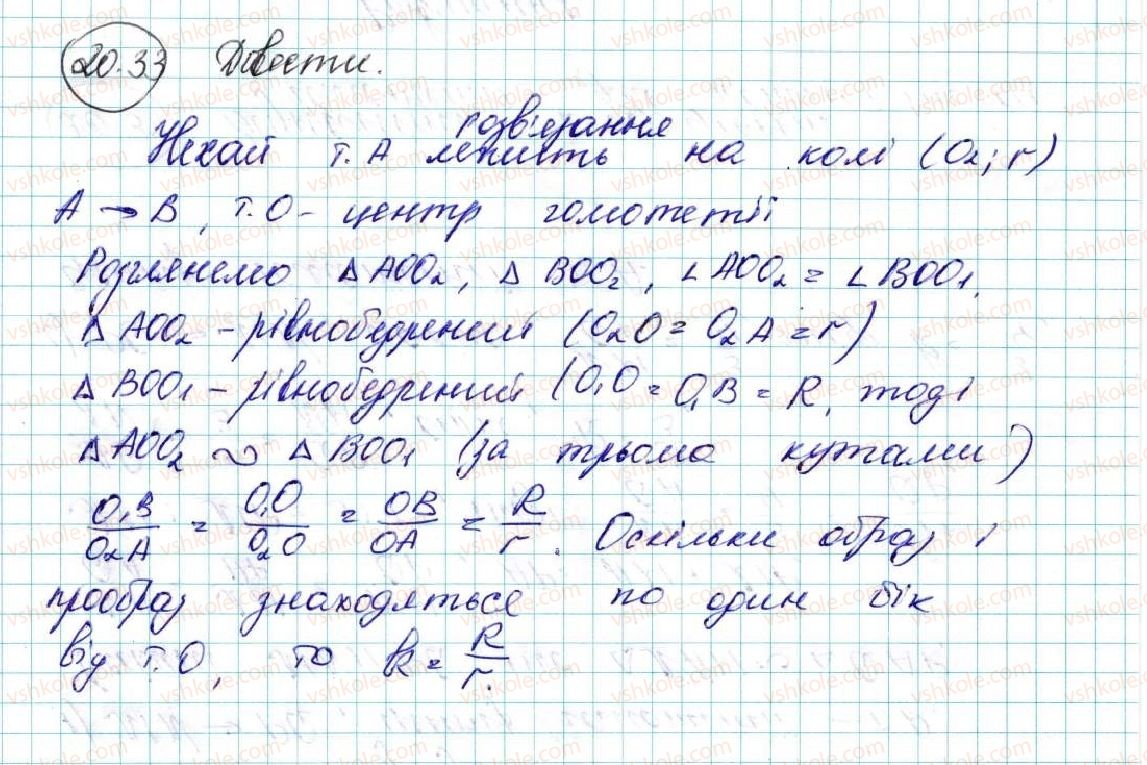 20.33 Довести.
розв'язання
Нехай т. А лежить на колі (O₂; r)
A → B, т. O - центр гомотетії
Розглянемо Δ AOO₂, Δ BOO₂, ∠ AOO₂ = ∠ BOO₁.
Δ AOO₂ - рівнобедрений (O₂O = O₂A = r)
Δ BOO₁ - рівнобедрений (O₁O = O₁B = R, тоді
Δ AOO₂ ∾ Δ BOO₁ (за трьома кутами)
O₁B/O₂A = O₁O/O₂O = OB/OA = R/r. Оскільки образ і
прообраз знаходяться по один бік
від т. O, то k = R/r.